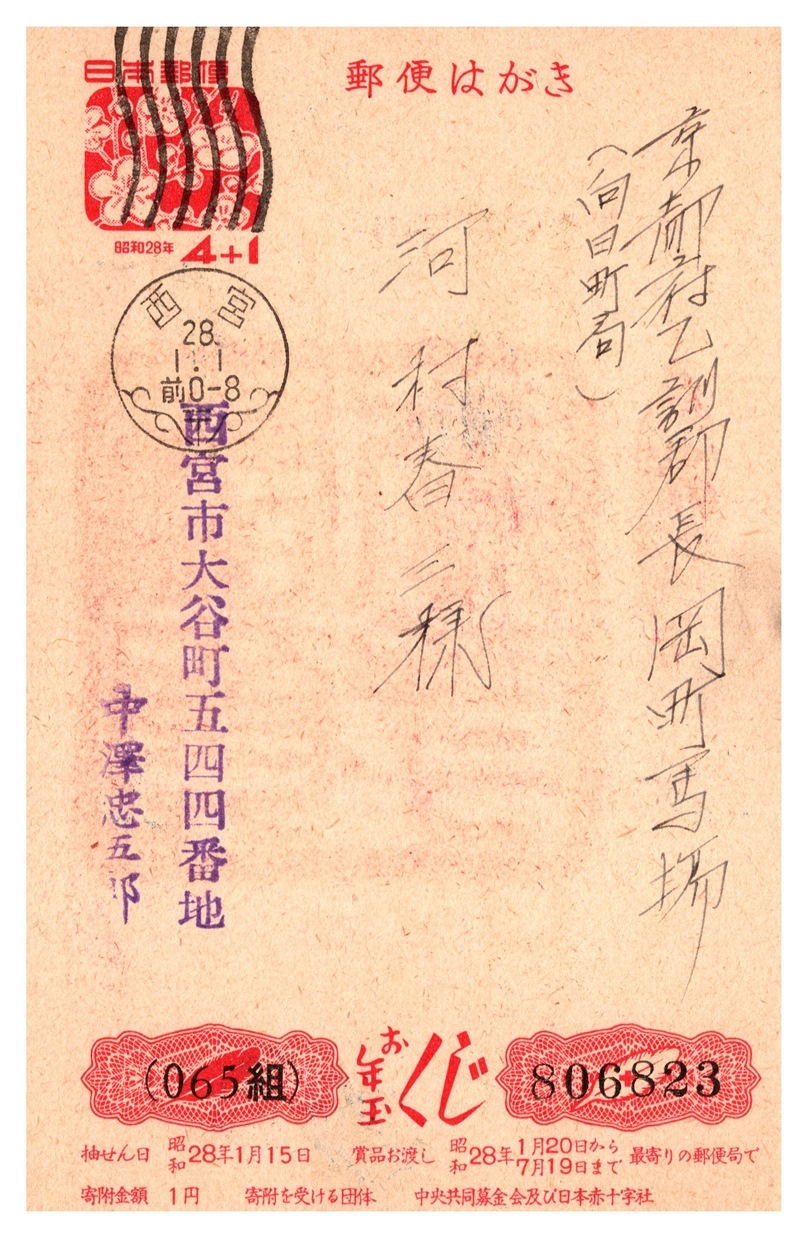 郵便はがき
日本郵便
昭和28年 4+1
西宮
28.
1.1
前0-8
京都府乙訓郡長岡町馬場
(向日町局)
河村春三様
西宮市大谷町五四四番地
中澤忠五郎
(065組)
お年玉くじ
806823
抽せん日 昭和28年1月15日 賞品お渡し 昭和28年1月20日から7月19日まで 最寄りの郵便局で
寄附金額 1円 寄附を受ける団体 中央共同募金会及び日本赤十字社